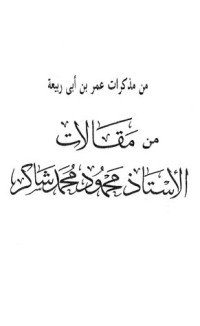 من مذكرات عمر بن أبى ربيعة
من مَقَالات
الأستاذ محمود محمد شاكر